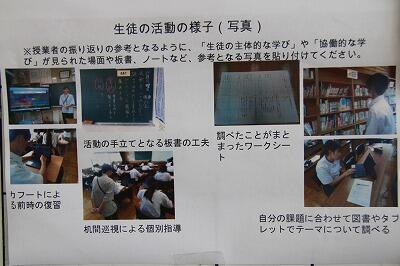 生徒の活動の様子(写真)
※授業者の振り返りの参考となるように、「生徒の主体的な学び」や「協働的な学
び」が見られた場面や板書、ノートなど、参考となる写真を貼り付けてください。
活動の手立てとなる板書の工夫
調べたことがまと
まったワークシー
ト
カフートによ
る前時の復習
机間巡視による個別指導
自分の課題に合わせて図書やタブ
レットでテーマについて調べる